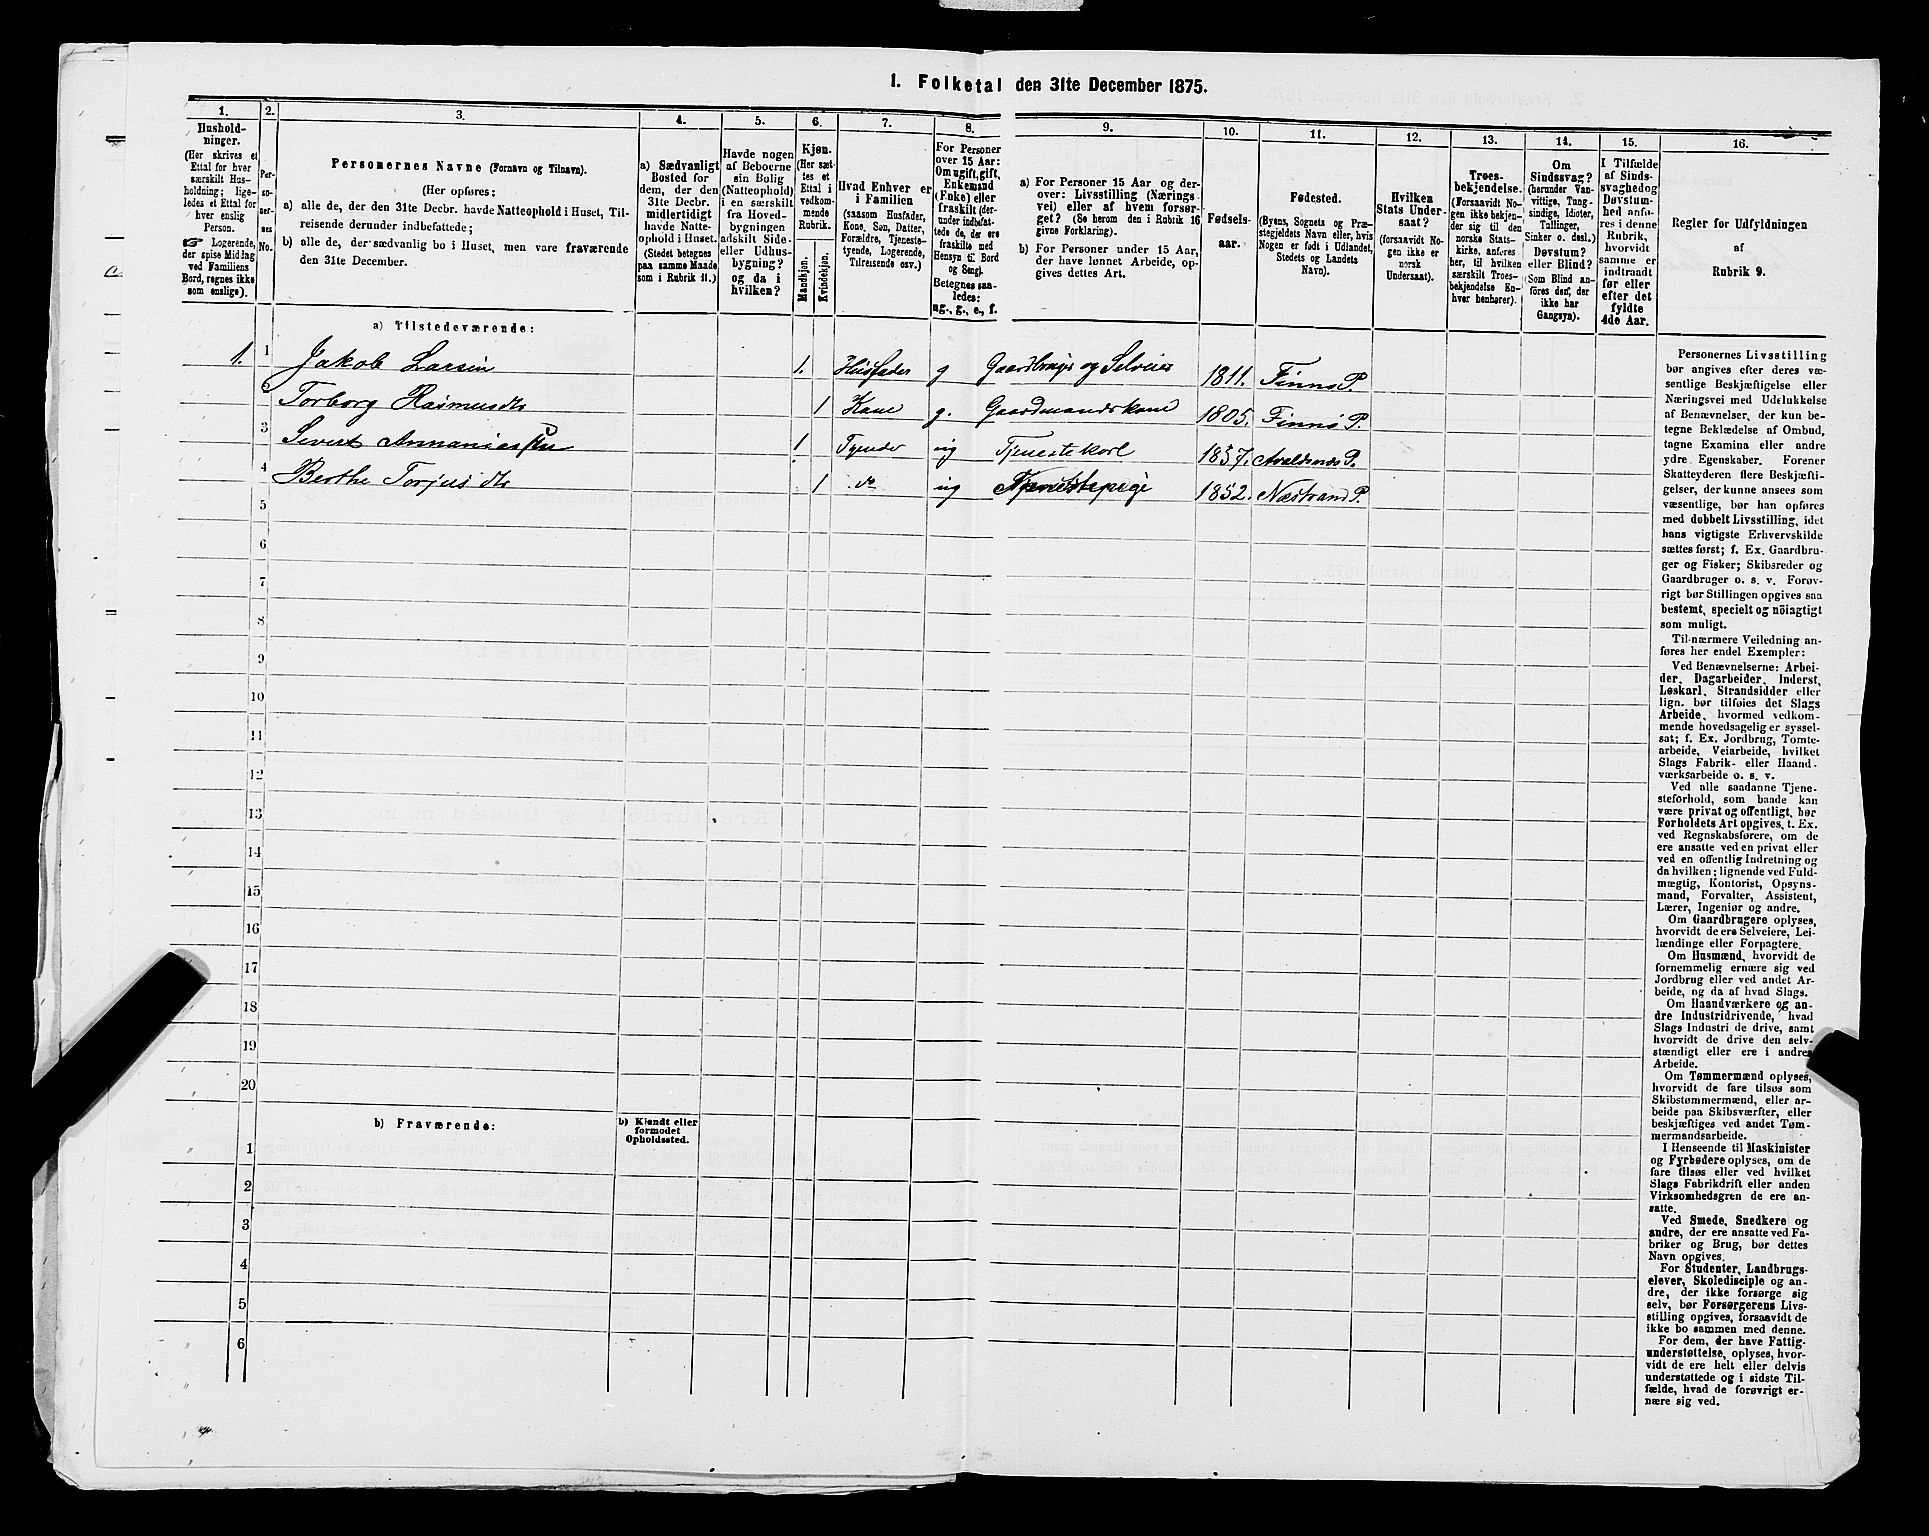 1. Folketal den 31te December 1875.
1. 2. 3. 4. 5. 6. 7. 8. 9. 10. 11. 12. 13. 14. 15. 16.
Hushold-
ninger.
(Her skrives et
Ettal for hver
særskilt Hus-
holdning; lige-
ledes et Ettal for
hver enslig
Person.
☞ Logerende,
der spise Middag
ved Familiens
Bord, regnes ikke
som enslige).
Per-
so-
ner-
nes
No.
Personernes Navne (Fornavn og Tilnavn).
(Her opføres:
a) alle de, der den 31te Decbr. havde Natteophold i Huset, Til-
reisende derunder indbefattede;
b) alle de, der sædvanlig bo i Huset, men vare fraværende
den 31te December.
a) Sædvanligt
Bosted for
dem, der den
31te Decbr.
midlertidigt
havde Natte-
ophold i Huset.
(Stedet betegnes
paa samme Maade
som i Rubrik 11.)
Havde nogen
af Beboerne
sin Bolig
(Natteophold)
i en særskilt
fra Hoved-
bygningen
adskilt Side-
eller Udhus-
bygning?
og da i
hvilken?
Kjøn.
(Her sæt-
tes et
Ettal i
vedkom-
mende
Rubrik.
Mandkjøn.
Kvindekjøn.
Hvad Enhver er
i Familien
(saasom Husfader,
Kone, Søn, Datter,
Forældre, Tjeneste-
tyende, Logerende,
Tilreisende osv.)
For Personer
over 15 Aar:
Om ugift, gift,
Enkemand
(Enke) eller
fraskilt (der-
under indbefat-
tede de, der ere
fraskilte med
Hensyn til Bord
og Seng).
Betegnes saa-
ledes:
ug., g., e., f.
a) For Personer 15 Aar og der-
over: Livsstilling (Nærings-
vei) eller af hvem forsør-
get? (Se herom den i Rubrik 16
givne Forklaring).
b) For Personer under 15 Aar,
der have lønnet Arbeide, op-
gives dettes Art.
Fødsels-
aar.
Fødested.
(Byens, Sognets og Præ-
stegjeldets Navn eller, hvis
Nogen er født i Udlandet,
Stedets og Landets
Navn).
Hvilken
Stats Under-
saat?
(forsaavidt No-
gen ikke er
norsk
Undersaat).
Troes-
bekjendelse.
(Forsaavidt No-
gen ikke bekjen-
der sig til den
norske Stats-
kirke, anføres
her, til hvilken
særskilt Troes-
bekjendelse En-
hver henhører).
Om
Sindssvag?
(herunder Van-
vittige, Tung-
sindige, Idioter,
Tullinger,
Sinker o. desl.)
Døvstum?
eller Blind?
(Som Blind an-
føres den, der
ikke har
Gangsyn).
I Tilfælde
af Sinds-
svaghed og
Døvstum-
hed anfø-
res i denne
Rubrik,
hvorvidt
samme er
indtraadt
før eller
efter det
fyldte
4de Aar.
Regler for Udfyldningen
af
Rubrik 9.
a) Tilstedeværende:
1. 1 Jakob Larsen 1. Husfader g Gaardbruger og Selveier 1811. Finnø P.
2 Torborg Rasmusdtr 1 Kone g. Gaardmandskone 1805. Finnø P.
3 Sivert Annaniassen 1 Tyende ug Tjenestekarl 1857. Avaldsnæs P.
4 Berthe Torjusdtr 1 do ug Tjenestepige 1852. Nærstrand P.
5
6
7
8
9
10
11
12
13
14
15
16
17
18
19
20
b) Fraværende:
b) Kjendt eller
formodet
Opholdssted.
1
2
3
4
5
6
Personernes Livsstilling
bør angives efter deres væ-
sentlige Beskjæftigelse eller
Næringsvei med Udelukkelse
af Benævnelser, der kun be-
tegne Beklædelse af Ombud,
tagne Examina eller andre
ydre Egenskaber. Forener
Skatteyderen flere Beskjæfti-
gelser, der kunne ansees som
væsentlige, bør han opføres
med dobbelt Livsstilling, idet
hans vigtigste Erhvervskilde
sættes først; f. Ex. Gaardbru-
ger og Fisker; Skibsreder og
Gaardbruger o. s. v. Forøv-
rigt bør Stillingen opgives saa
bestemt, specielt og nöiagtigt
som muligt.
Til nærmere Veiledning an-
føres her endel Exempler:
Ved Benævnelserne: Arbei-
der, Dagarbeider, Inderst,
Løskarl, Strandsidder eller
lign. bør tilføies det Slags
Arbeide, hvormed vedkom-
mende hovedsagelig er syssel-
sat; f. Ex. Jordbrug, Tomte-
arbeide, Veiarbeide, hvilket
Slags Fabrik- eller Haand-
værksarbeide o. s. v.
Ved alle saadanne Tjene-
steforhold, som baade kan
være privat og offentligt, bør
Forholdets Art opgives, t. Ex.
ved Regnskabsførere, om de
ere ansatte ved en privat eller
ved en offentlig Indretning og
da hvilken; lignende ved Fuld-
mægtig, Kontorist, Opsyns-
mand, Forvalter, Assistent,
Lærer, Ingeniør og andre.
Om Gaardbrugere oplyses,
hvorvidt de ere Selveiere, Lei-
lændinge eller Forpagtere.
Om Husmænd, hvorvidt de
fornemmelig ernære sig ved
Jordbrug eller ved andet Ar-
beide, og da af hvad Slags.
Om Haandværkere og an-
dre Industridrivende, hvad
Slags Industri de drive, samt
hvorvidt de drive den selv-
stændigt eller ere i andres
Arbeide.
Om Tømmermænd oplyses,
hvorvidt de fare tilsøs som
Skibstømmermænd, eller ar-
beide paa Skibsværfter, eller
beskjæftiges ved andet Tøm-
mermandsarbeide.
I Henseende til Maskinister
og Fyrbødere oplyses, om de
fare tilsøs eller ved hvilket
Slags Fabrikdrift eller anden
Virksomhedsgren de ere an-
satte.
Ved Smede, Snedkere og
andre, der ere ansatte ved Fa-
briker og Brug, bør dettes
Navn opgives.
For Studenter, Landbrugs-
elever, Skoledisciple og an-
dre, der ikke forsørge sig
selv, bør Forsørgerens Livs-
stilling opgives, forsaavidt de
ikke bo sammen med denne.
For dem, der have Fattig-
understøttelse, oplyses, hvor-
vidt de ere helt eller delvis
understøttede og i sidste Til-
fælde, hvad de forøvrigt er-
nære sig ved.